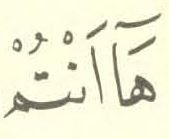 هَآاَنْتُمْ